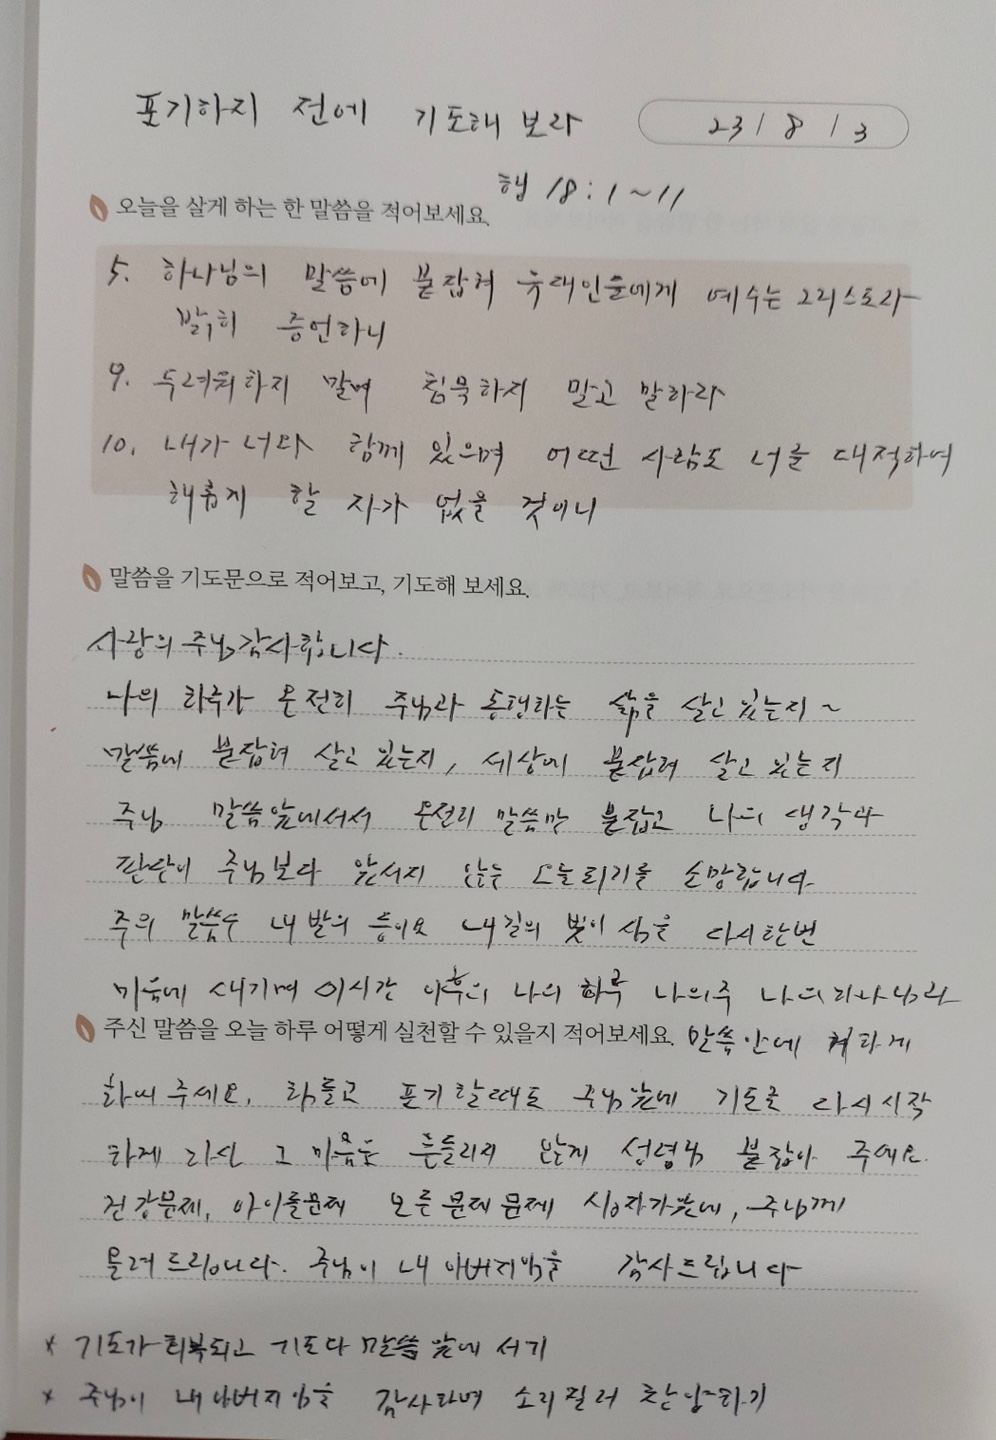 포기하지 전에 기도해 보라 23 / 8 / 3
행 18:1~11
오늘을 살게 하는 한 말씀을 적어보세요.
5. 하나님의 말씀에 붙잡혀 유대인들에게 예수는 그리스도라
밝히 증언하니
9. 두려워하지 말며 침묵하지 말고 말하라
10. 내가 너와 함께 있으며 어떤 사람도 너를 대적하여
해롭게 할 자가 없을 것이니
말씀을 기도문으로 적어보고, 기도해 보세요.
사랑의 주님 감사합니다.
나의 하루가 온전히 주님과 동행하는 삶을 살고 있는지~
말씀에 붙잡혀 살고 있는지, 세상에 붙잡혀 살고 있는지
주님 말씀앞에서서 온전히 말씀만 붙잡고 나의 생각과
판단이 주님보다 앞서지 않는 오늘되기를 소망합니다
주의 말씀은 내 발의 등이요 내 길의 빛이심을 다시한번
마음에 새기며 이시간 이후의 나의 하루 나의주 나의하나님과
주신 말씀을 오늘 하루 어떻게 실천할 수 있을지 적어보세요. 말씀안에 거하게
하여 주세요. 힘들고 포기할때도 주님앞에 기도로 다시시작
하게 하신 그 마음도 흔들리지 않게 성령님 붙잡아 주세요.
건강문제, 아이들문제 모든 문제 문제 십자가앞에, 주님께
올려 드립니다. 주님이 내 아버지임을 감사드립니다
* 기도가 회복되고 기도다 말씀 앞에 서기
* 주님이 내 아버지임을 감사하며 소리질러 찬양하기